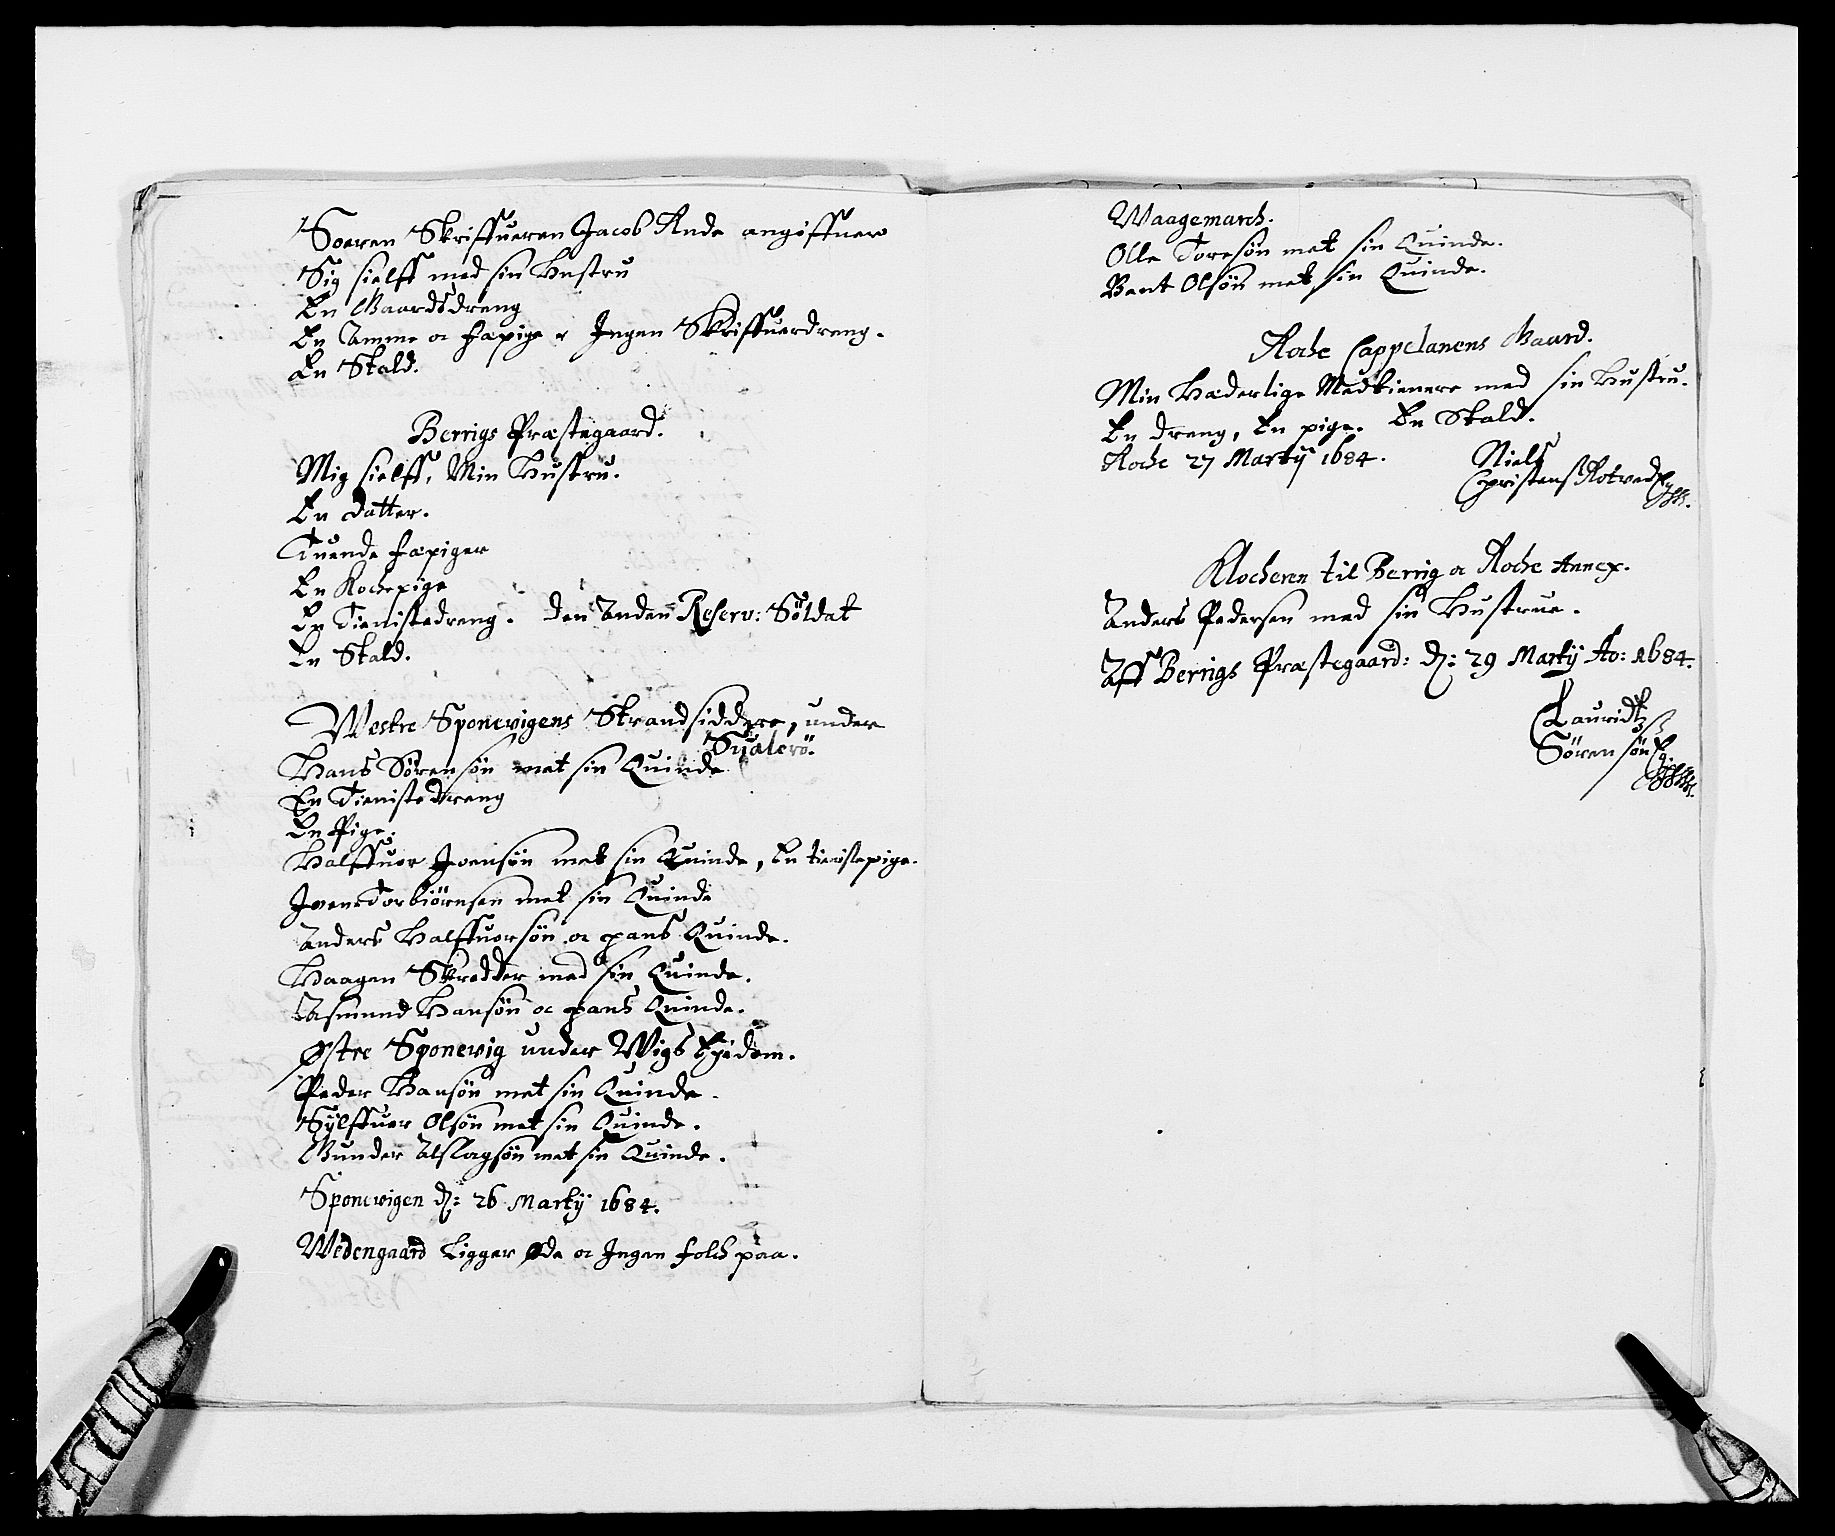 Soeren Skriffueren Jacob Ande angiffuer
Sig sielff med sin Hustru
En Gaardsdreng
En Amme oc fæpige Ingen Skriffuerdreng.
En Stald.
Berrigs Præstegaard.
Mig sielff, Min Hustru.
En datter.
Tuende fæpiger
En Kochepige
En Tienistedreng. den Anden Reserv: Soldat
En Stald.
Westre Sponevigens Strandsiddere, under
Sualerö.
Hans Sörensön met sin Quinde
En Tienistedreng
En Pige.
Halffuor Joensön met sin Quinde, En tienistepige.
Joen Torbiörnsen met sin Quinde
Anders Halffuorsön oc hans Quinde.
Haagen Skredder med sin Quinde.
Asmund Hansön oc hans Quinde.
Østre Sponevig under Wigs Eyedom.
Peder Hansön met sin Quinde.
Sÿlffuer Olsön met sin Quinde.
Gunder Aslagsön met sin Quinde.
Sponevigen d: 26 Martÿ 1684.
Wedengaard Ligger øde oc Ingen folch paa.
Waagemarch.
Olle Toresön met sin Quinde.
Bent Olsön met sin Quinde.
Roche Cappelanens Gaard.
Min Hæderlige Medtienere med sin Hustru.
En dreng, En pige. En Stald.
Roche 27 Martÿ 1684.
Niels
Christens Rotved
Klocheren til Berrig oc Roche Annex.
Anders Pedersen med sin Hustrue.
Aff Berrigs Præstegaard: d: 29 Martÿ Ao: 1684.
Lauridtz
Sörensön